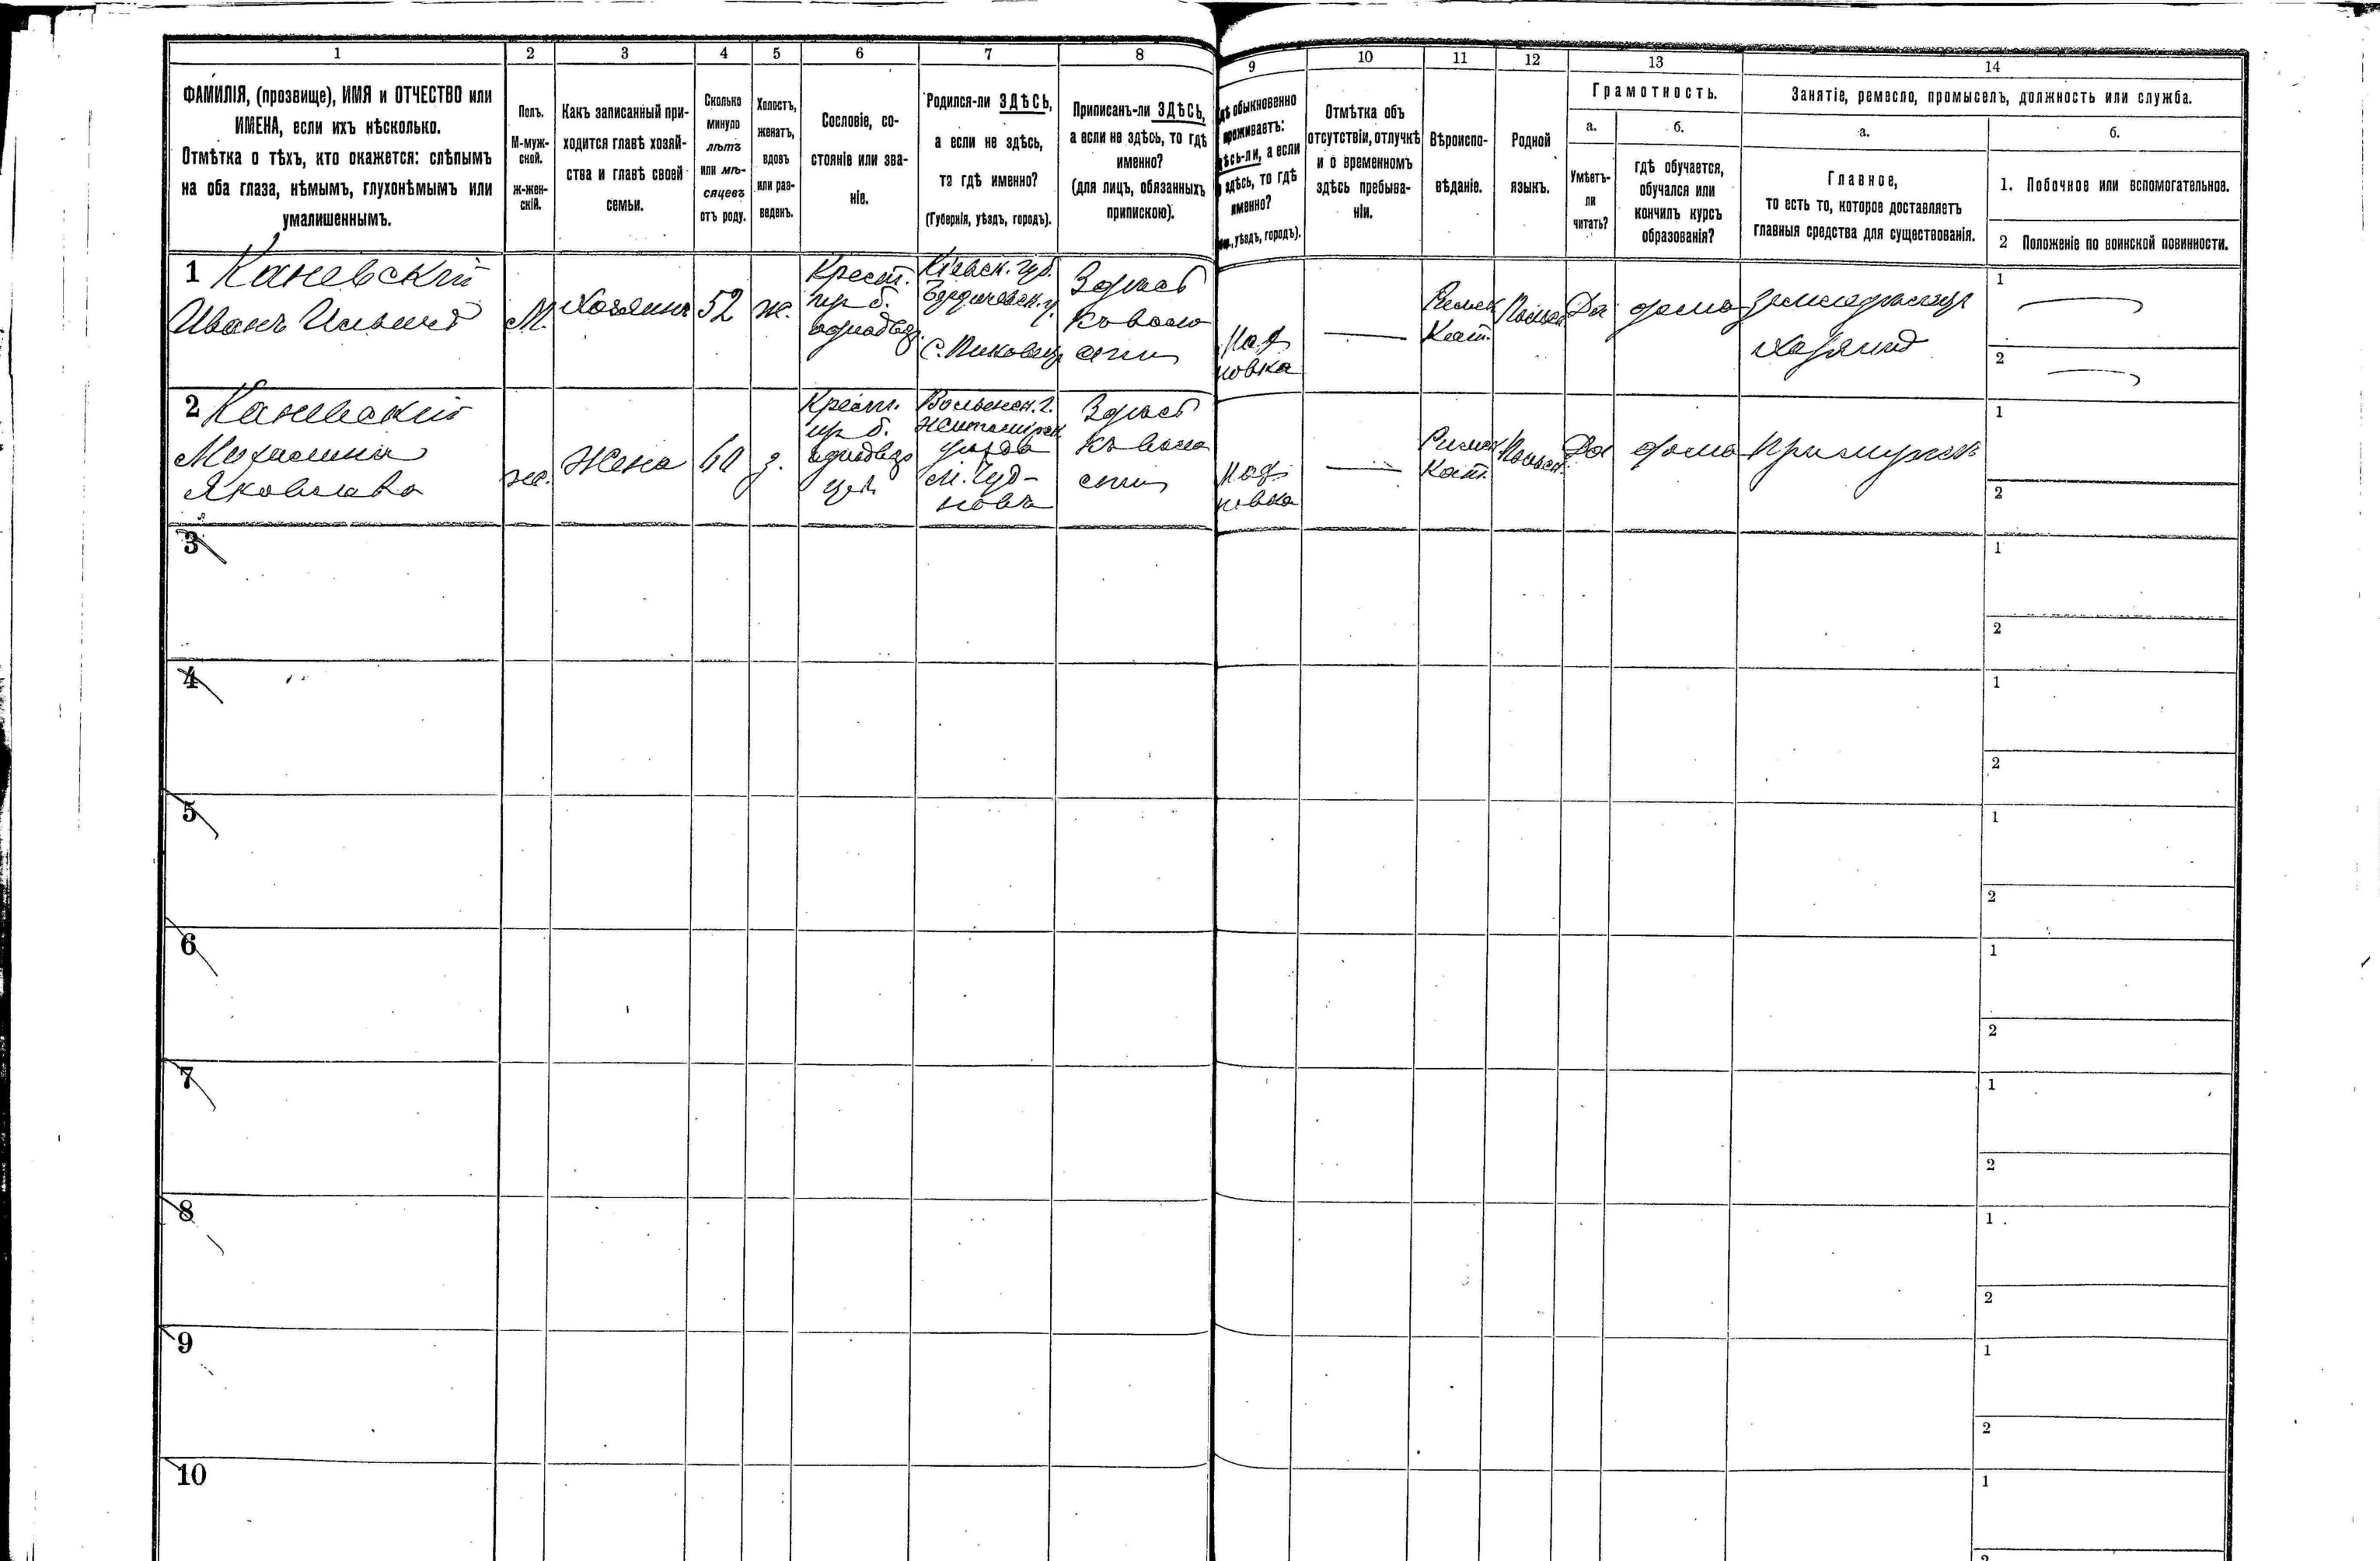 1
2
3
4
5
6
7
8
9
10
11
12
13
14
ФАМИЛІЯ, (прозвище), ИМЯ и ОТЧЕСТВО или
ИМЕНА, если ихъ нѣсколько.
Отмѣтка о тѣхъ, кто окажется: слѣпымъ
на оба глаза, нѣмымъ, глухонѣмымъ или
умалишеннымъ.
Полъ.
М-муж-
ской.
ж-жен-
скій.
Какъ записанный при-
ходится главѣ хозяй-
ства и главѣ своей
семьи.
Сколько
минуло
лѣтъ
или мѣ-
сяцевъ
отъ роду.
Холостъ,
женатъ,
вдовъ
или раз-
веденъ.
Сословіе, со-
стояніе или зва-
ніе.
Родился-ли ЗДѢСЬ,
а если не здѣсь,
то гдѣ именно?
(Губернія, уѣздъ, городъ).
Приписанъ-ли ЗДѢСЬ,
а если не здѣсь, то гдѣ
именно?
(для лицъ, обязанныхъ
припискою).
обыкновенно
проживаетъ:
а если
здѣсь, то гдѣ
именно?
уѣздъ, городъ).
Отмѣтка объ
отсутствіи, отлучкѣ
и о временномъ
здѣсь пребыва-
ніи.
Вѣроиспо-
вѣданіе.
Родной
языкъ.
Грамотность.
а.
Умѣетъ-
ли
читать?
б.
гдѣ обучается,
обучался или
кончилъ курсъ
образованія?
Занятіе, ремесло, промыселъ, должность или служба.
а.
Главное,
то есть то, которое доставляетъ
главныя средства для существованія.
б.
1. Побочное или вспомогательное.
2 Положеніе по воинской повинности.
1 Каневскій
Иванъ
М.
Хозяинъ
52
ж.
Крест.
из б.
Кіевск. губ.
Бердичевск. у.
Здѣсь
къ воло
сти
новка
Римск
Кат.
Польск.
Да
дома
Хозяинъ
1
2
2 Каневский
Яковлева
ж.
Жена
60
з.
Крест.
из б.
Волынск. г.
Житомирск.
уѣзда
М. Чуд-
новъ
Здѣсь
къ воло
сти
новка
Римск
Кат.
Польск.
Да
дома
При мужѣ
1
2
3
1
2
4
1
2
5
1
2
6
1
2
7
1
2
8
1
2
9
1
2
10
1